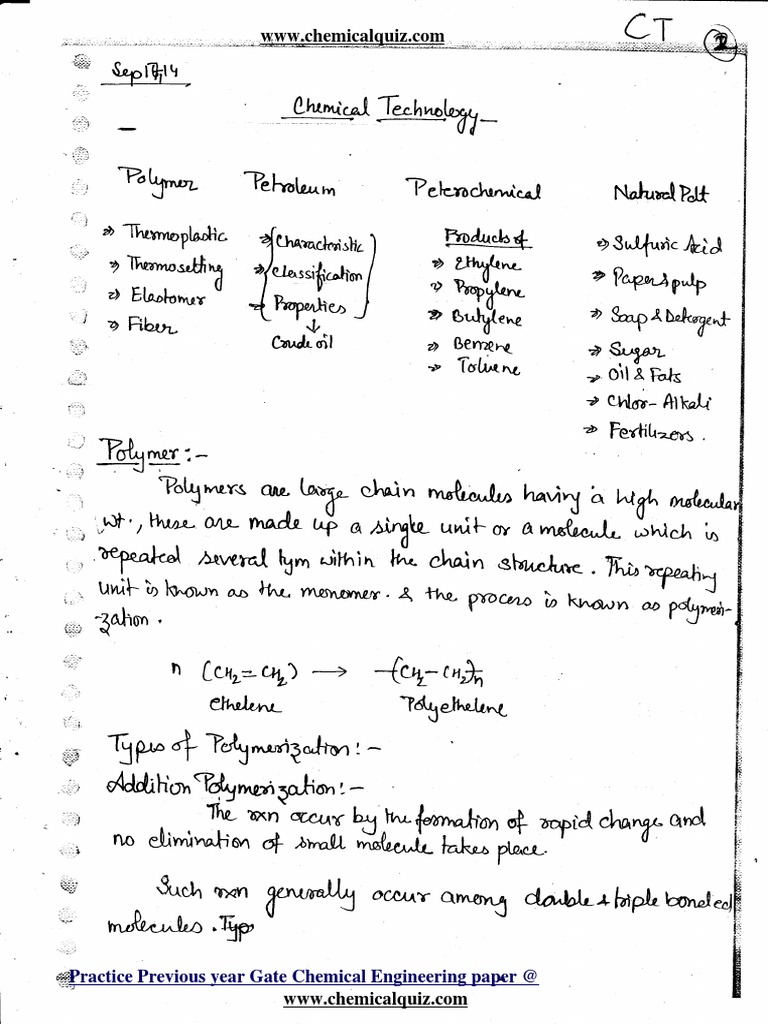 www.chemicalquiz.com
CT
2
Sep17,14
Chemical Technology
Polymer Petroleum Peterochemical Natural Pdt
Thermoplastic
Thermosetting
Elastomer
Fiber
Characteristic
Classification
Properties
↓
Crude oil
Products of
Ethylene
Propylene
Butylene
Benzene
Toluene
Sulfuric Acid
Paper & pulp
Soap & Detergent
Sugar
Oil & Fats
Chlor-Alkali
Fertilizers.
Polymer:-
Polymers are large chain molecules having a high molecular
wt., these are made up a single unit or a molecule which is
repeated several tym within the chain structure. This repeating
unit is known as the monomer. & the process is known as polymeri-
-zation.
n (CH2=CH2) → -(CH2-CH2)n
ethelene Polyethelene
Types of Polymerization:-
Addition Polymerization:-
The rxn occur by the formation of rapid change and
no elimination of small molecule takes place.
Such rxn generally occur among double & triple bonded
molecules. Typ
Practice Previous year Gate Chemical Engineering paper @
www.chemicalquiz.com